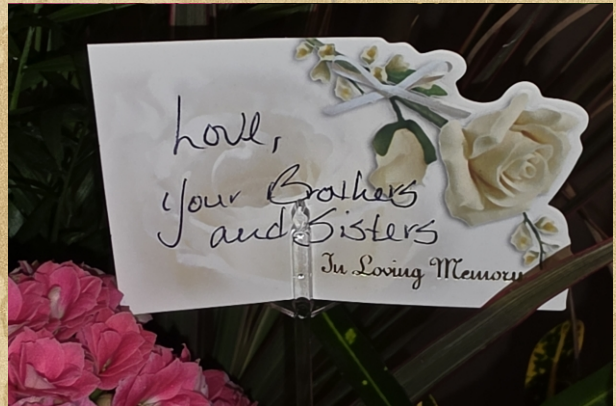 Love,
Your Brothers
and Sisters
In Loving Memory